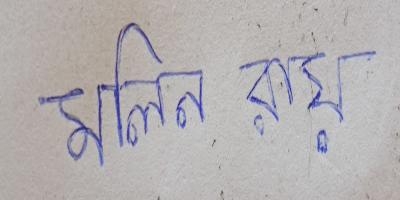 মলিন রায়